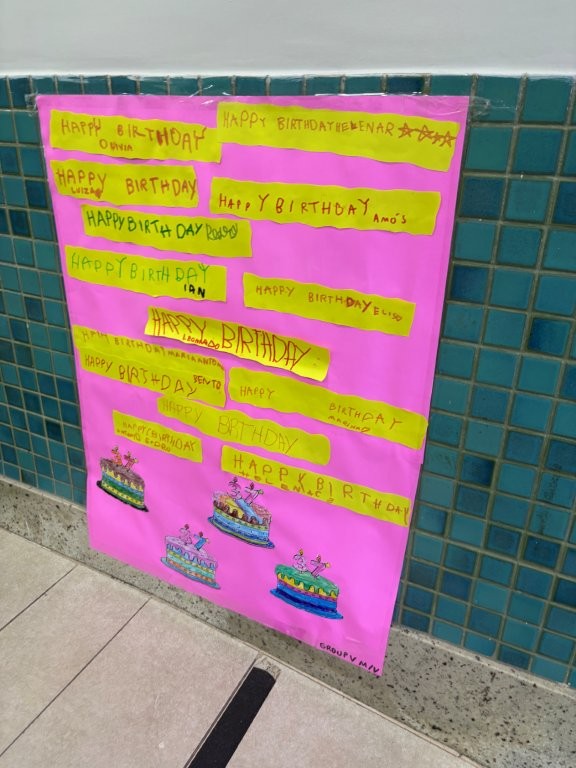 HAPPY BIRTHDAY
OLIVIA
HAPPY BIRTHDAY HELENA R
HAPPY BIRTHDAY
LUIZA
HAPPY BIRTHDAY AMÓS
HAPPY BIRTHDAY
HAPPY BIRTHDAY
IAN
HAPPY BIRTHDAY ELISA
HAPPY BIRTHDAY
LEONARDO
BIRTHDAY MARIA ANTONIA
HAPPY BIRTHDAY BENTO
HAPPY BIRTHDAY
HAPPY BIRTHDAY
HAPPY BIRTHDAY
HAPPY BIRTHDAY
HELENA C
37
37
37
37
GROUP V M/V